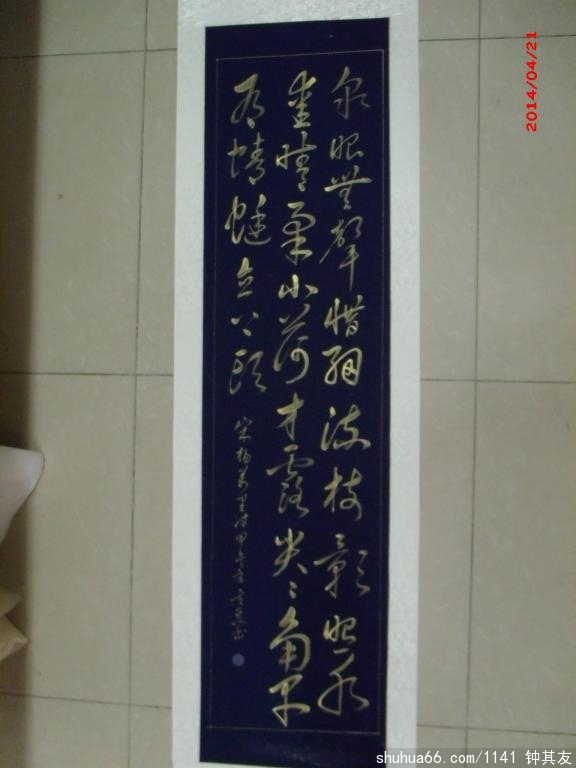 泉眼無聲惜細流樹影照水
愛晴柔小荷才露尖々角早
有蜻蜓立上頭
宋楊萬里詩甲午年
2014/04/21
shuhua66.com/1141 钟其友